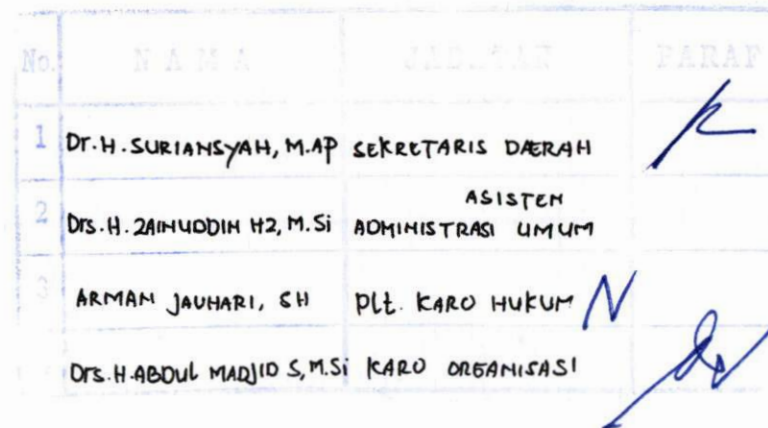 No. NAMA JABATAN PARAF
1 Dr.H. SURIANSYAH, M.AP SEKRETARIS DAERAH
ASISTEN
2 Drs.H. ZAINUDDIN HZ, M.Si ADMINISTRASI UMUM
3 ARMAN JAUHARI, SH Plt. KARO HUKUM
Drs.H.ABDUL MADJID S, M.Si KARO ORGANISASI